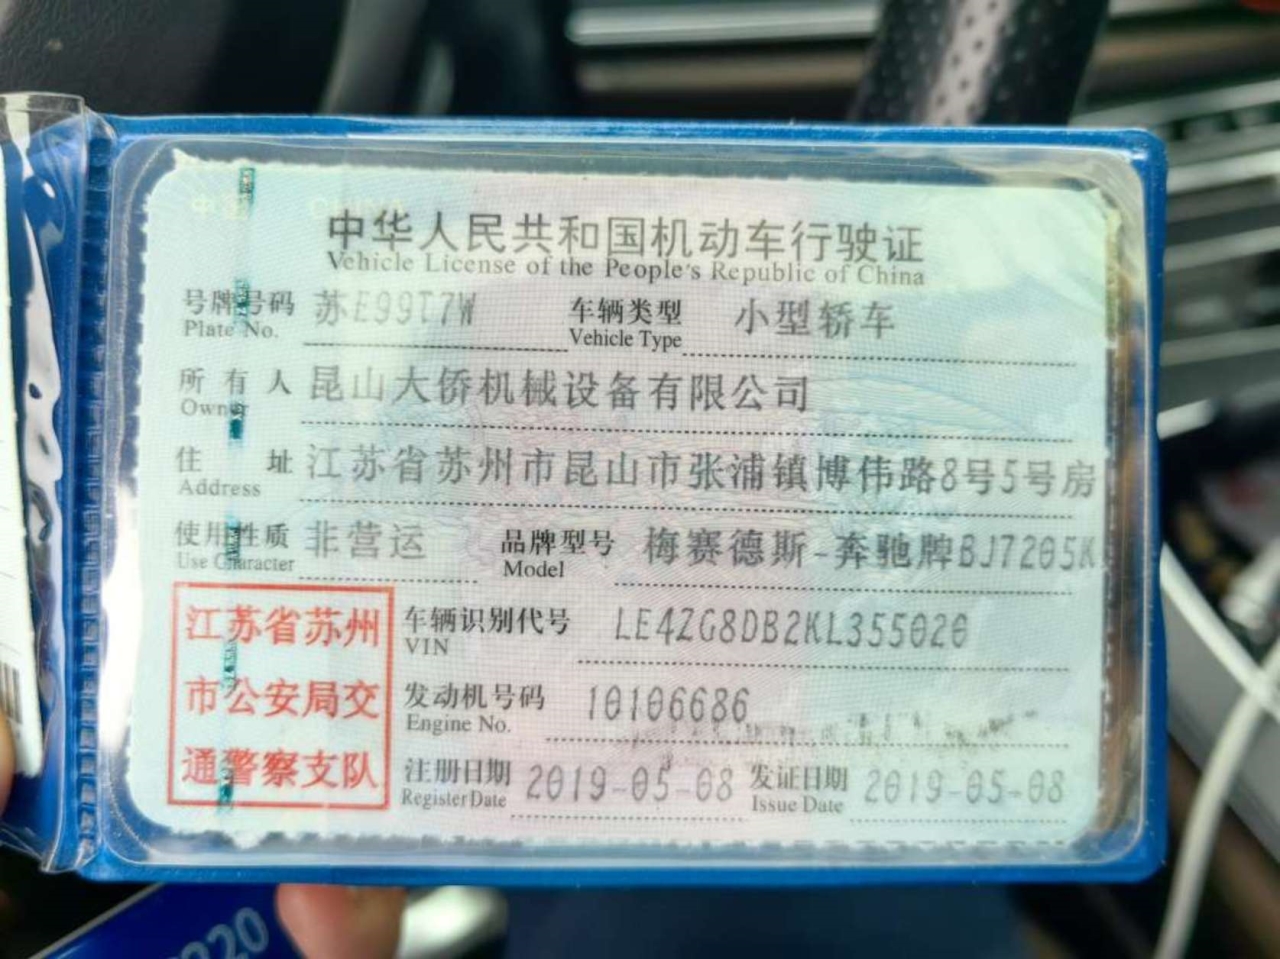 中华人民共和国机动车行驶证
Vehicle License of the People's Republic of China
号牌号码 苏E99T7W 车辆类型 小型轿车
Plate No. Vehicle Type
所有人 昆山大侨机械设备有限公司
Owner
住址 江苏省苏州市昆山市张浦镇博伟路8号5号房
Address
使用性质 非营运 品牌型号 梅赛德斯-奔驰牌BJ7205K
Use Character Model
江苏省苏州
市公安局交
通警察支队
车辆识别代号 LE4ZG8DB2KL355020
VIN
发动机号码 10106686
Engine No.
注册日期 2019-05-08 发证日期 2019-05-08
Register Date Issue Date
220